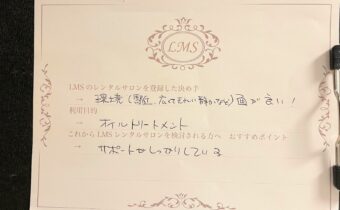 LMS
LMSのレンタルサロンを登録した決め手
→ 環境(駅近、広さきれい静かなど)面が良い!
利用目的
→ オイルトリートメント
これからLMSレンタルサロンを検討される方へ おすすめポイント
→ サポートがしっかりしている